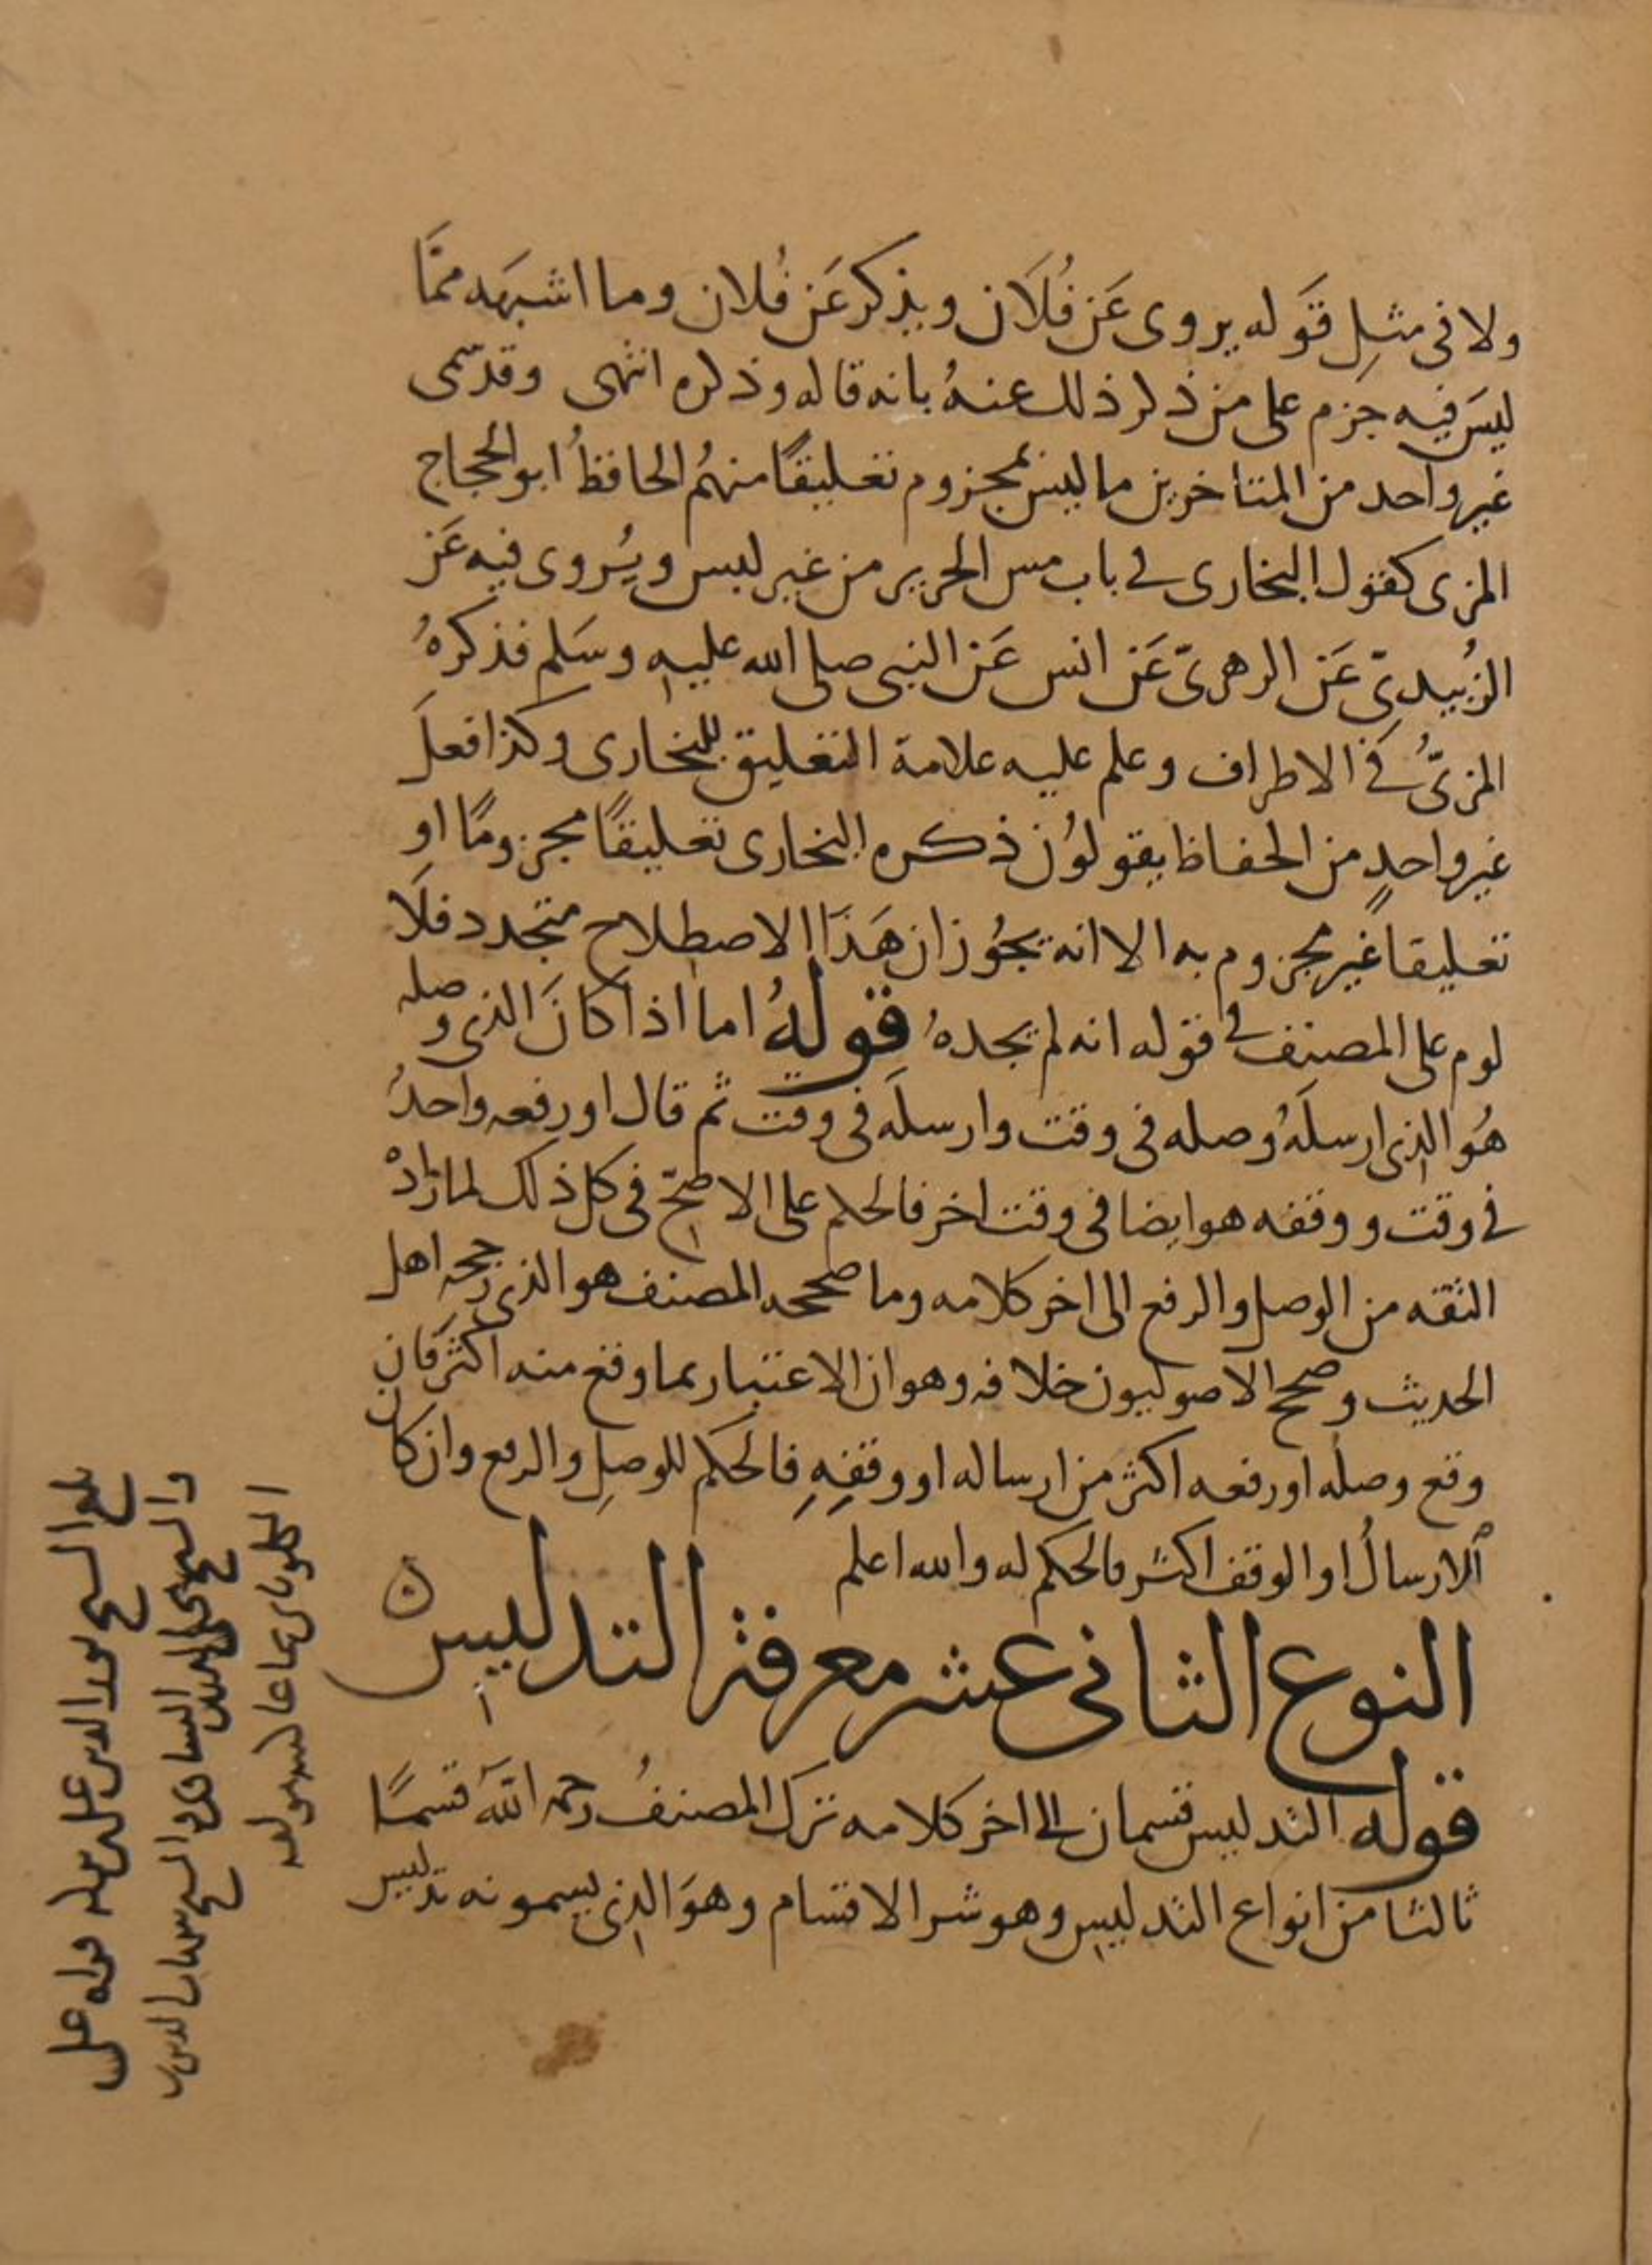 ولا فى مثلِ قَوله يروى عَن فُلَان ويذكر عَن فُلان وما اشبهَه ممَّا
ليسَ فيه جَزم على من ذكر ذلك عنهُ بانه قاله وذكره انتهى وقد سمى
غير واحد من المتاخرين ما ليس بمجزوم تعليقًا منهمُ الحافظُ ابو الحجاج
المزى كقول البخارى فى باب مس الحرير من غير لبس ويُروى فيه عَن
الزُبيدىّ عَن الزهرىّ عَن انس عَن النبى صلى الله عليه وسَلم فذكرهُ
المزىُّ فى الاطراف وعلم عليه علامة التعليق للبخارى وكذا فعلَ
غير واحدٍ من الحفاظ يقولوُن ذكره البخارى تعليقًا مجزومًا او
تعليقا غير مجزوم به الا انه يجوُز ان هَذَا الاصطلاح متجدد فلَا
لوم على المصنف فى قوله انه لم يجدهُ قولهُ اما اذا كانَ الذى وصله
هُو الذى ارسلَهُ وصله فى وقت وارسلَه فى وقت ثم قال او رفعه واحدُ
فى وقت ووقفه هو ايضا فى وقت اخر فالحكم على الاصحّ فى كل ذلك لما زادهْ
الثقه من الوصل والرفع الى اخر كلامه وما صححه المصنف هو الذى رجحه اهل
الحديث وصحح الاصوليون خلافه وهو ان الاعتبار بما وقع منه اكثر فان
وقع وصله او رفعه اكثر من ارساله او وقفِهِ فالحكم للوصلِ والرفع وان كان
الارسالُ او الوقف اكثر فالحكم له والله اعلم
النوع الثانى عشر معرفة التدليس
قوله التدليس قسمان الى اخر كلامه ترك المصنفُ رحمه اللهُ قسمًا
ثالثا من انواع التدليس وهو شر الاقسام وهوَ الذى يسمونه تدليس
بلغ الشيخ نور الدين على